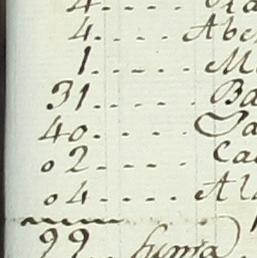 4....
4.... Abe
1..... M
31..... Ba
40.....
02..... Ca
04..... Al
99.. suma